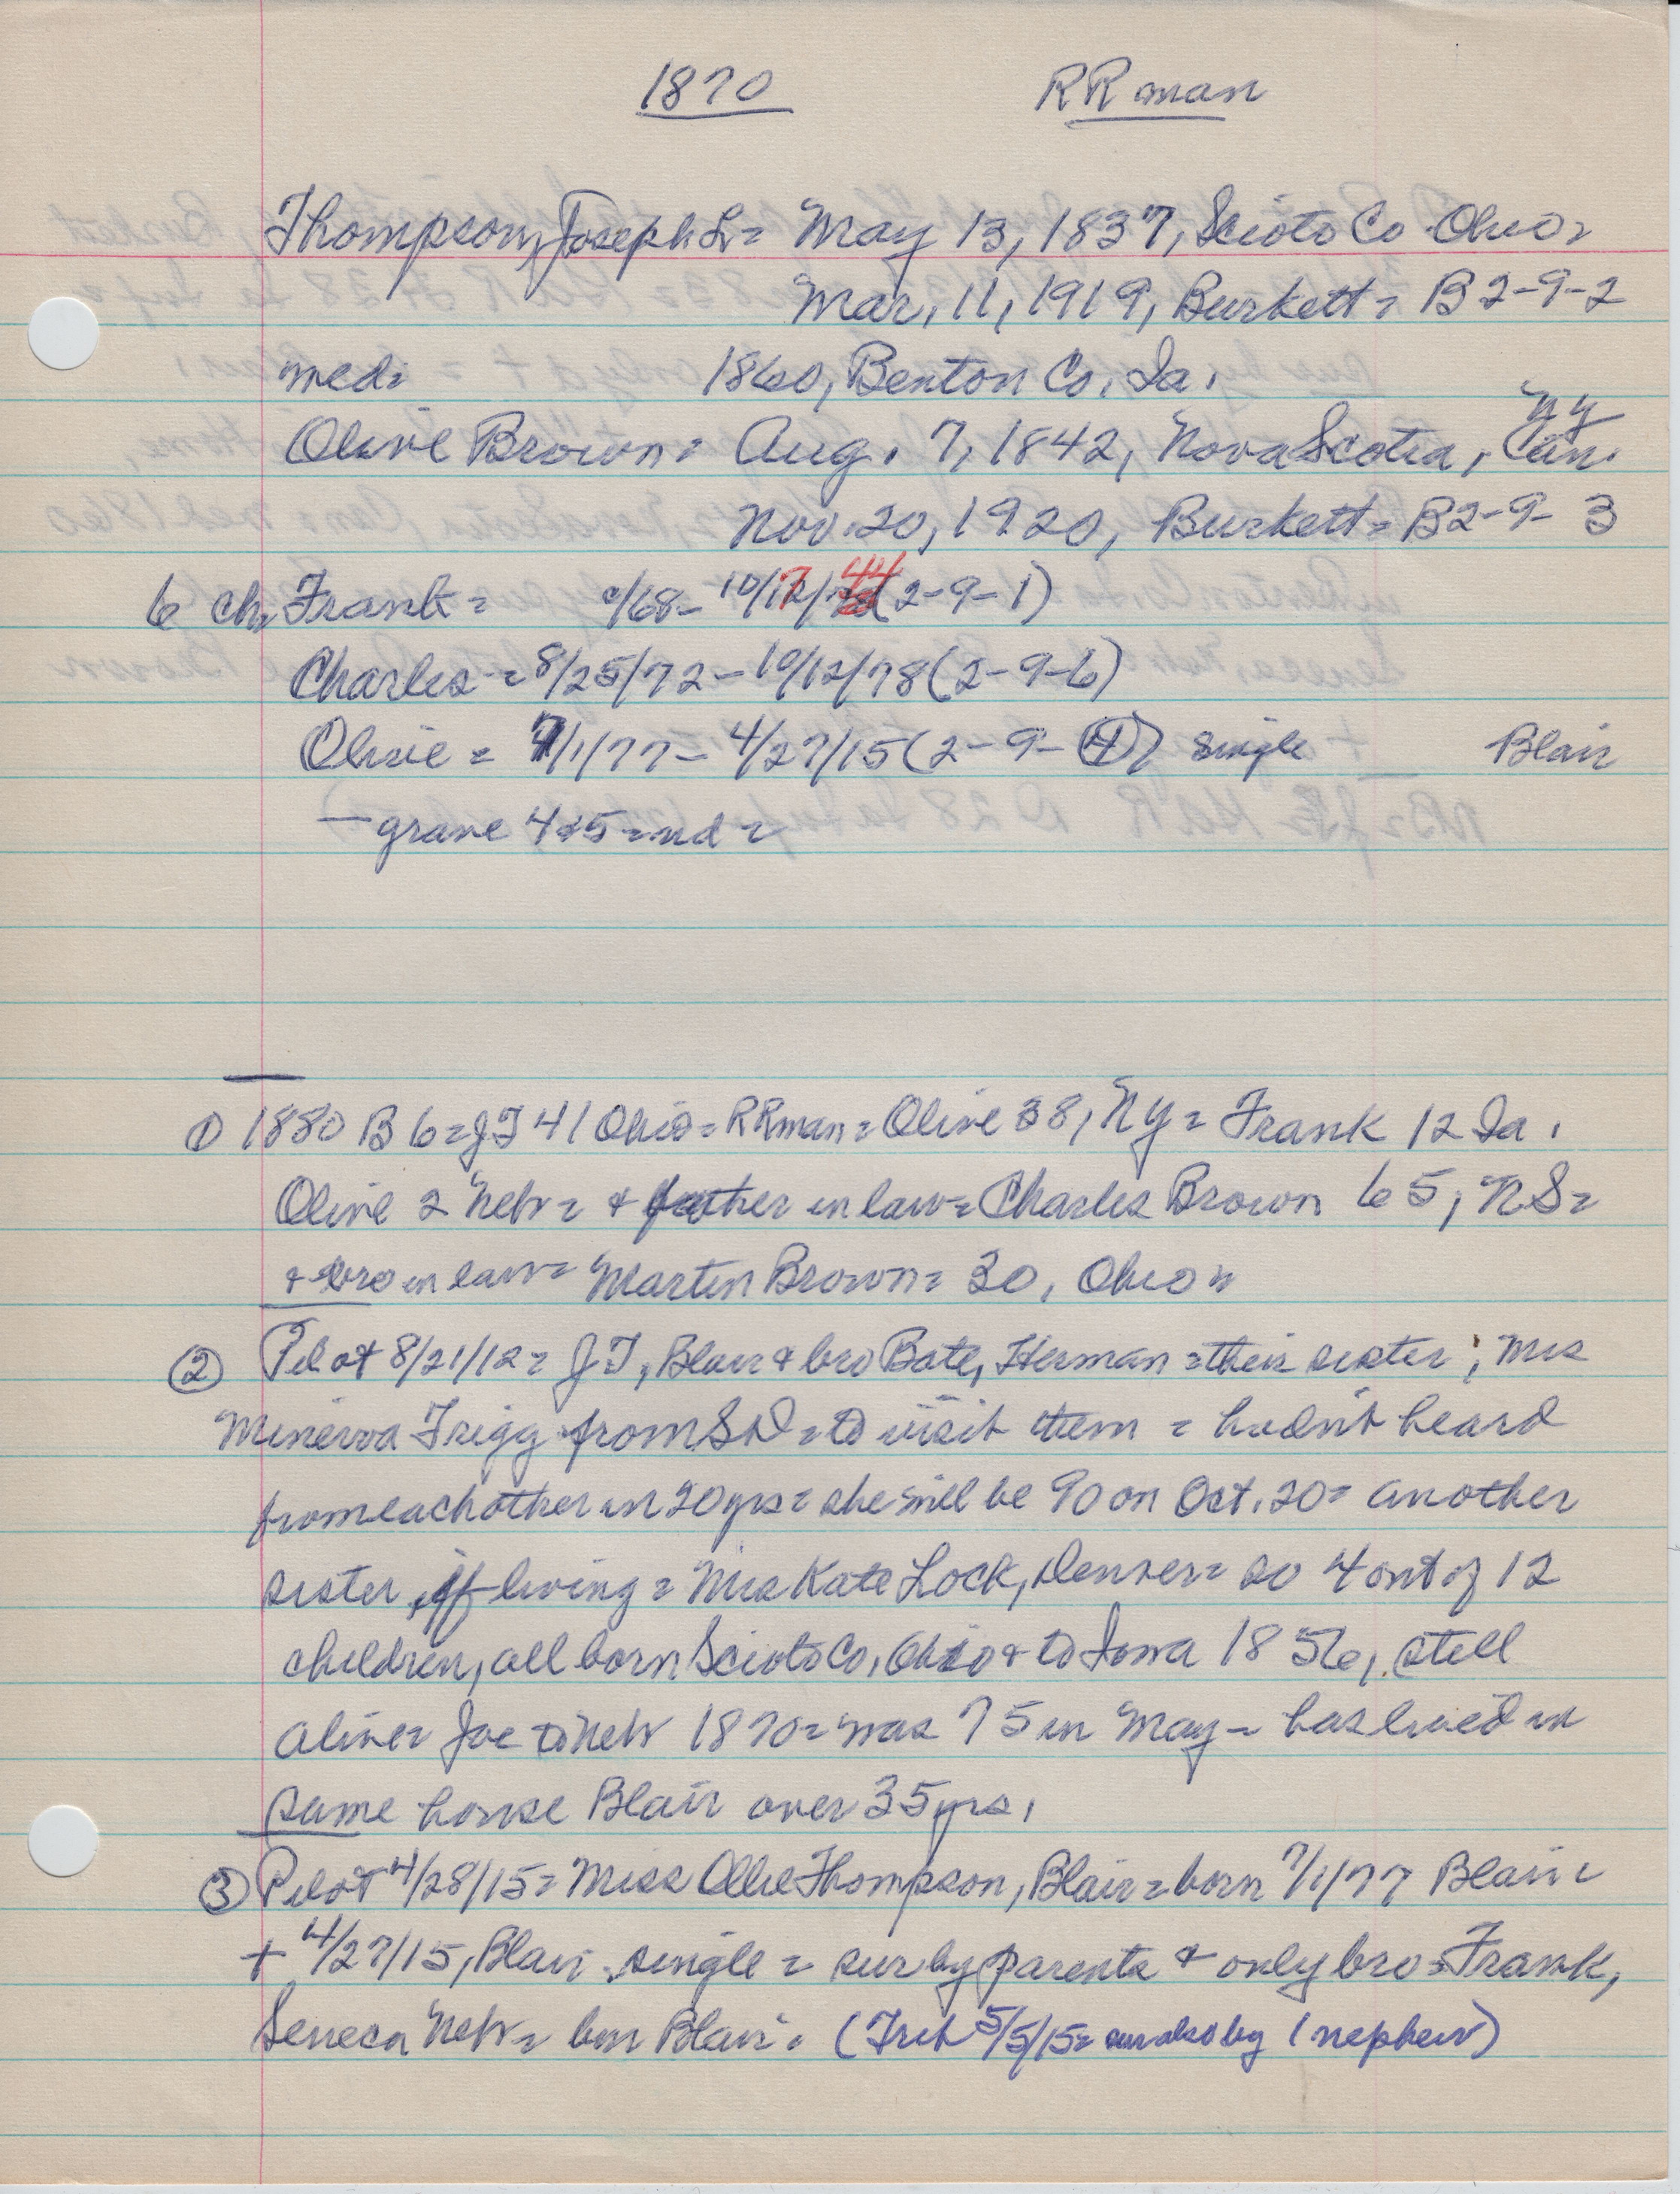 1870 RR man
Thompson, Joseph L = May 13, 1837, Scioto Co Ohio =
Mar, 11, 1919, Burkett = B 2-9-2
med = 1860, Benton Co, Ia,
NY
Olive Brown = Aug. 7, 1842, Nova Scotia, Can.
Nov. 20, 1920, Burkett = B2-9-3
6 ch, Frank = c/68 - 10/17/44 (2-9-1)
Charles = 8/25/72 - 10/12/78 (2-9-6)
Olive = 7/1/77 - 4/27/15 (2-9-4) single Blair
grave 4 & 5 = nd =
① 1880 B 6 = JT 41 Ohio = RR man = Olive 38, NY = Frank 12 Ia.
Olive 2 Neb = & father in law = Charles Brown 65, NS =
& bro in law = Martin Brown = 30, Ohio =
② Pilot 8/21/12 = JT, Blair & bro Bate, Herman = their sister, Mrs
Minerva Trigg from SD = to visit them = hadn't heard
from each other in 20 yrs = she will be 90 on Oct. 20 = another
sister, if living = Mrs Kate Lock, Denver = so 4 out of 12
children, all born Scioto Co, Ohio & to Iowa 1856, still
alive = Joe to Neb 1870 = was 75 in May - has lived in
same house Blair over 35 yrs,
③ Pilot 4/28/15 = Miss Ollie Thompson, Blair = born 7/1/77 Blair =
+ 4/27/15, Blair single = sur by parents & only bro = Frank,
Seneca Neb = bur Blair. (Trib 5/5/15 = sur also by 1 nephew)